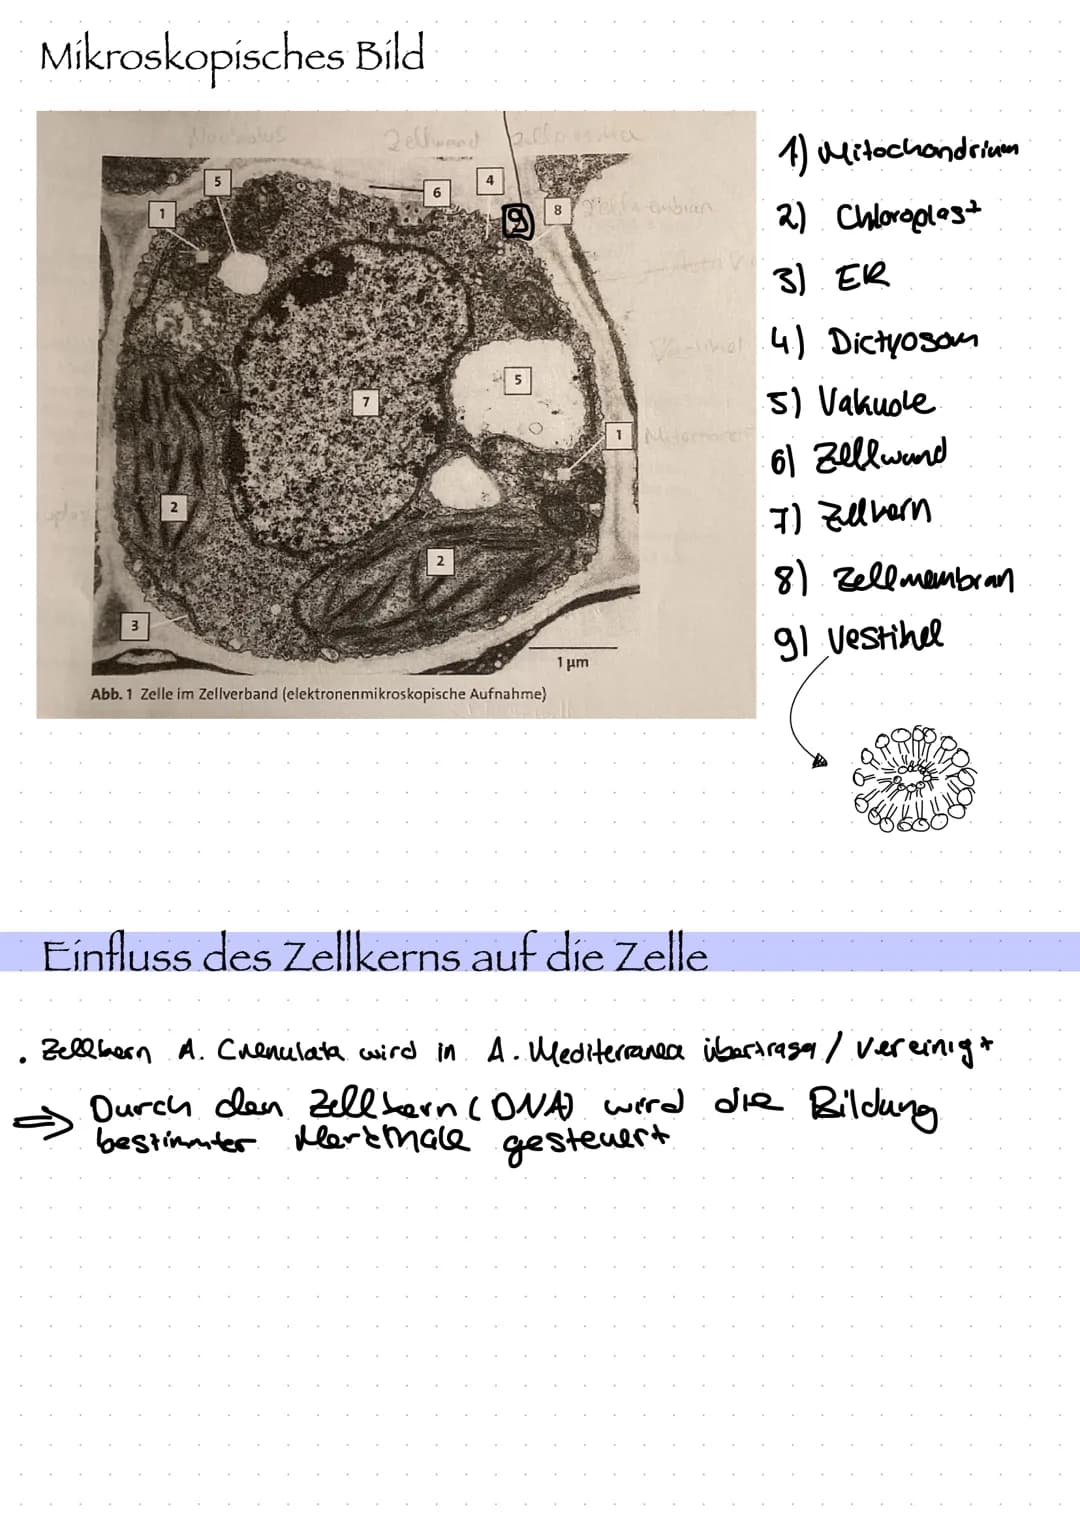 Mikroskopisches Bild
Nucleolus Zellwand
5
4
6
1
9
8
5
7
1
2
2
3
1 µm
Abb. 1 Zelle im Zellverband (elektronenmikroskopische Aufnahme)
1) Mitochondrium
2) Chloroplast
3) ER
4) Dictyosom
5) Vakuole
6) Zellwand
7) Zellkern
8) Zellmembran
9) Vestikel
Einfluss des Zellkerns auf die Zelle
. Zellkern A. Crenulata wird in A. Mediterranea übertragen / vereinigt
⇒ Durch den Zellkern (DNA) wird die Bildung
bestimmter Merkmale gesteuert